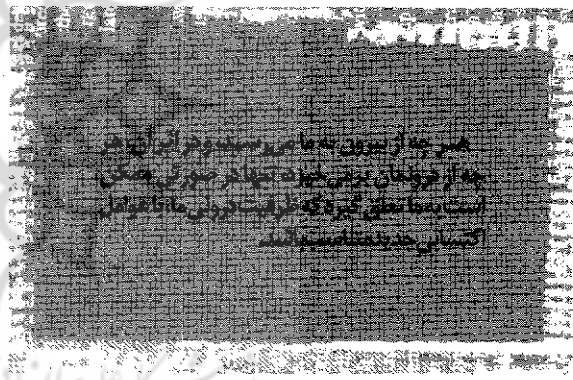 هر چه از بیرون به ما می‌رسد و در اثر آن، هر
چه از درونمان برمی‌خیزد، تنها در صورتی ممکن
است به ما تعلق گیرد که ظرفیت درونی ما، با عوامل
اکتسابی جدید متناسب باشد.